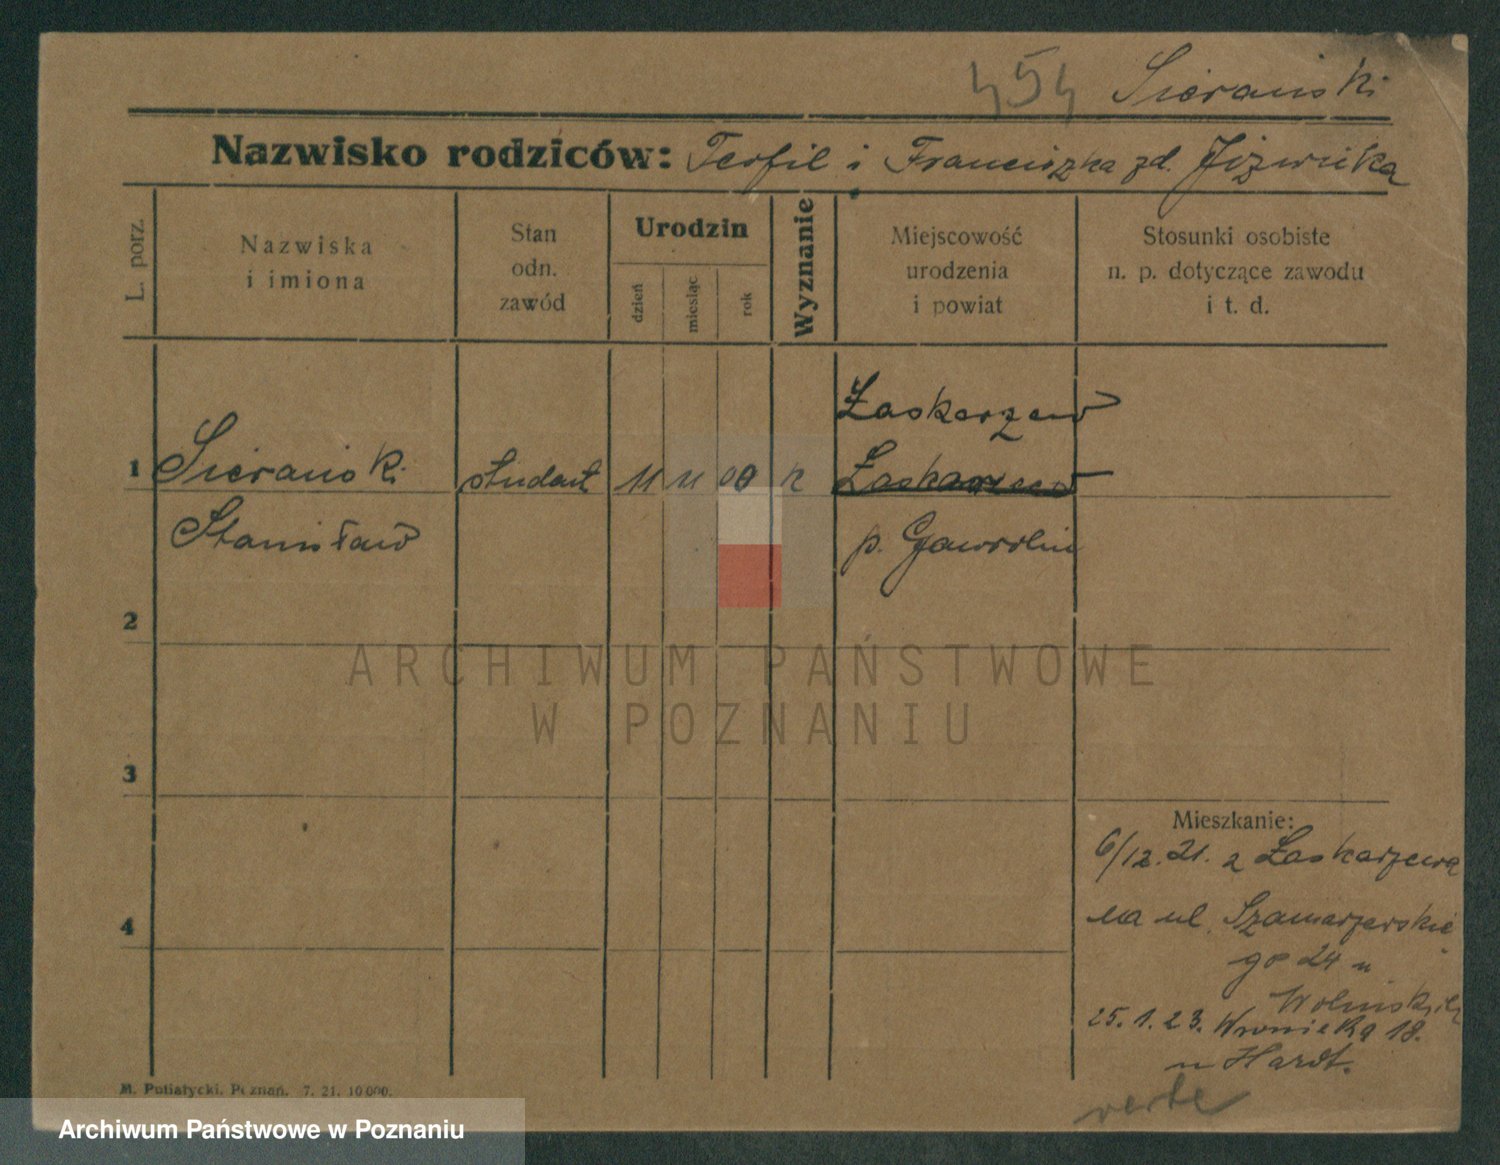 454 Sierański
Nazwisko rodziców: Teofil i Franciszka zd. Jóźwicka
L. porz.
Nazwiska
i imiona
Stan
odn.
zawód
Urodzin
dzień
miesiąc
rok
Wyznanie
Miejscowość
urodzenia
i powiat
Stosunki osobiste
n. p. dotyczące zawodu
i t. d.
Łaskarzew
1 Sierański student 11 11 00 r Łaskarzew
Stanisław p. Garwolin
2
3
4
Mieszkanie:
6/12.21. z Łaskarzewa
na ul. Szamarzewskie
go 24 u
Wolińskich
25.1.23. Wroniecka 18.
u Hardt.
verte
M. Putiatycki, Poznań. 7. 21. 10000.
ARCHIWUM PAŃSTWOWE
W POZNANIU
Archiwum Państwowe w Poznaniu